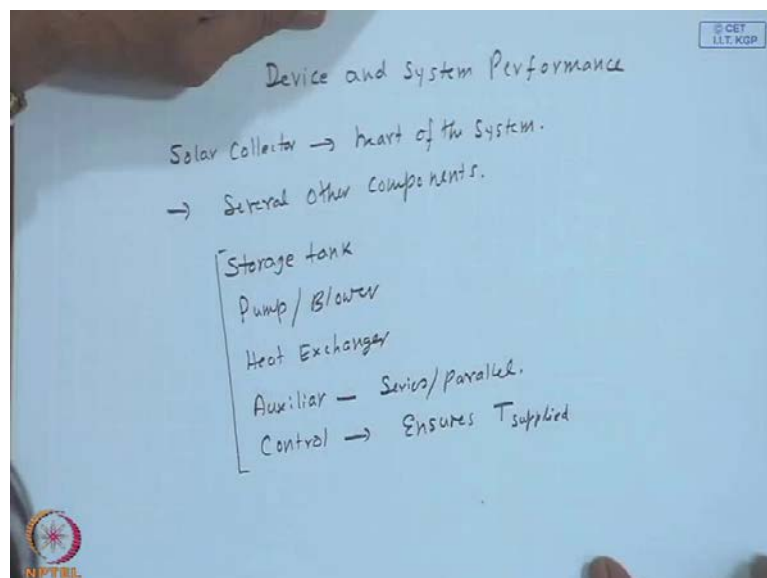 © CET
I.I.T. KGP
Device and System Performance
Solar Collector → heart of the System.
→ Several other components.
Storage tank
Pump / Blower
Heat Exchanger
Auxiliar — Series/parallel.
Control → Ensures Tsupplied
NPTEL